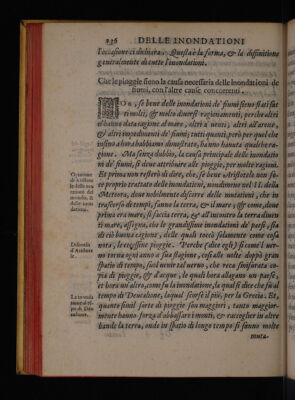 236 DELLE INONDATIONI
l'occasione ci dichiara. Questa è la forma, & la diffinitione
generalmente di tutte l'inondationi.
Che le pioggie sieno la causa necessaria delle inondationi de
fiumi, con l'altre cause concorrenti.
se bene delle inondationi de' fiumi sieno stati sat
ti molti, & molto diversi ragionamenti, perche altri
hanno data ragione al mare, altri a venti, altri all'arene,
& altri impedimenti de' fiumi; tutti quanti, però per quel che
insino a hora habbiamo dimostrato, hanno hauuta qualche ra-
gione. Ma senza dubbio, la causa principale delle inondatio
ni de' fiumi, si deue attribuire alle pioggie, per molte ragioni.
Et prima non resterò di dire, che, se bene Aristotele non fe-
ce proprio trattato delle inondationi, nondimeno nel II. della
Meteora, doue nobilmente discorre delle mutationi, che in
trascorso di tempi, fanno la terra, & il mare; & come, doue
prima era mare, si faccia terra, & all'incontro la terra diuen
ti mare, assegna, che le grandissime inondationi ne' dà, sia
di ciò buona cagione; delle quali tocca solamente come cosa
nota, le eccessiue pioggie. Perche (dice egli) si come l'uer-
no torna ogni anno a sua stagione, così alle uolte doppo gran
spatio di tempo, suol uenir tal uerno, che reca smisurata co-
pia di pioggie, & d'acque, le quali hora allagano un paese,
et hora un'altro, come fu la inondatione, la qual si dice che fu al
tempo di Deucalione, laqual scorse il più, per la Grecia. Et,
quanto simil sorte di pioggie son maggiori, tanto maggior-
mente hanno forza d'abbassare i monti, & raccoglier in altre
bande la terra, onde in spatio di lungo tempo si fanno molte
muta-
Opinione
di Aristote
le delle mu
tationi del
mondo, &
delle inon
dationi.
Discorso
d'Aristote
le.
La inonda
tione al tē
po di Deu
calione.